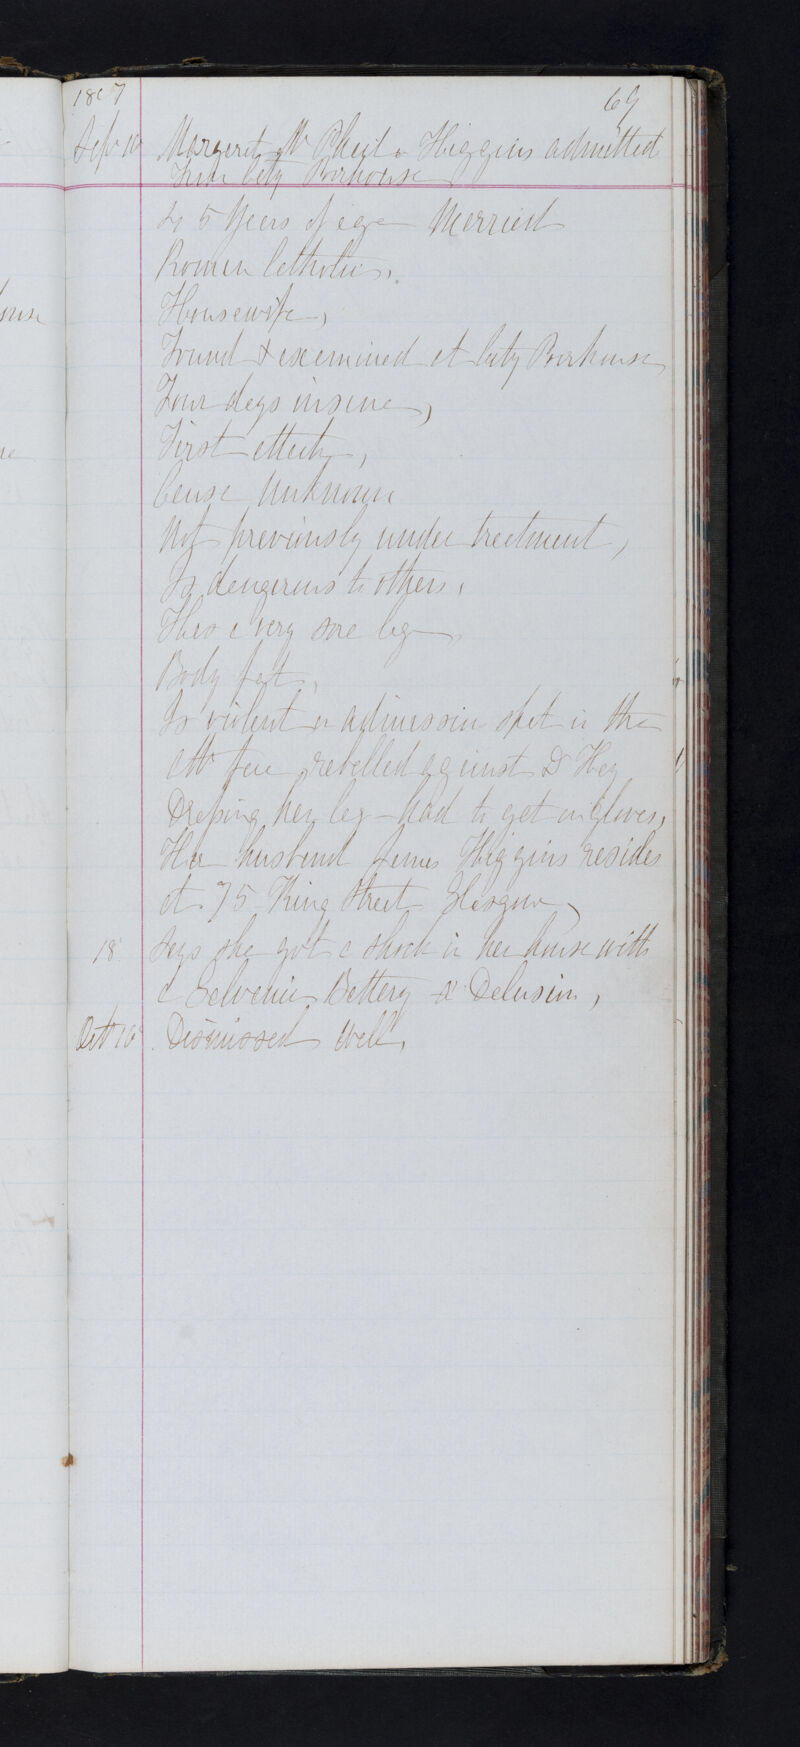 1867
69
Sep 10 Margaret McPhail or Higgins admitted
from City Poorhouse
Is 5 years of age Married
Roman Catholic,
Housewife,
Found & examined at City Poorhouse,
Four days insane,
First attack,
Cause Unknown
Not previously under treatment,
Is dangerous to others,
Has a very sore leg
Body fat,
Is violent on admission spat in the
face rebelled against Dr
Dressing her leg - had to get on gloves,
Her husband James Higgins resides
at 75 King Street Glasgow,
18 Says she got a shock in her house with
a Galvanic Battery a Delusion,
Oct 16 Dismissed Well,